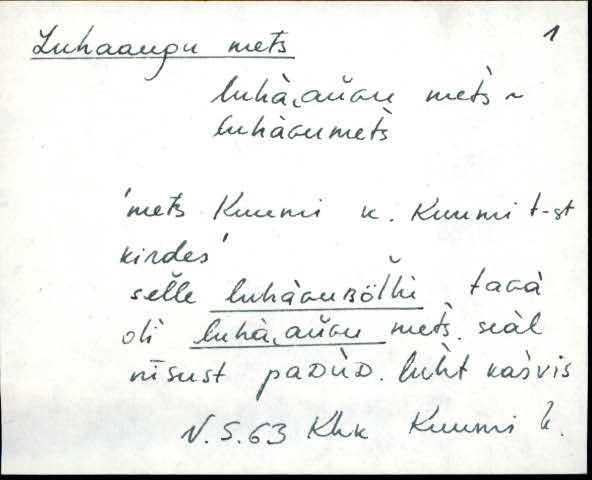 Luhaaugu mets 1
luhà,aŭɢu mets̀ ~
luhàɢumets̀
'mets Kuumi k. Kuumi t-st
kirdes'
selle luhàɢuʙöĺĺi taɢà
oĺi luhà,aŭɢu mets̀. seàl
nīsust paᴅùᴅ. luht̀ kaśvis
N.S.63 Khk Kuumi k.